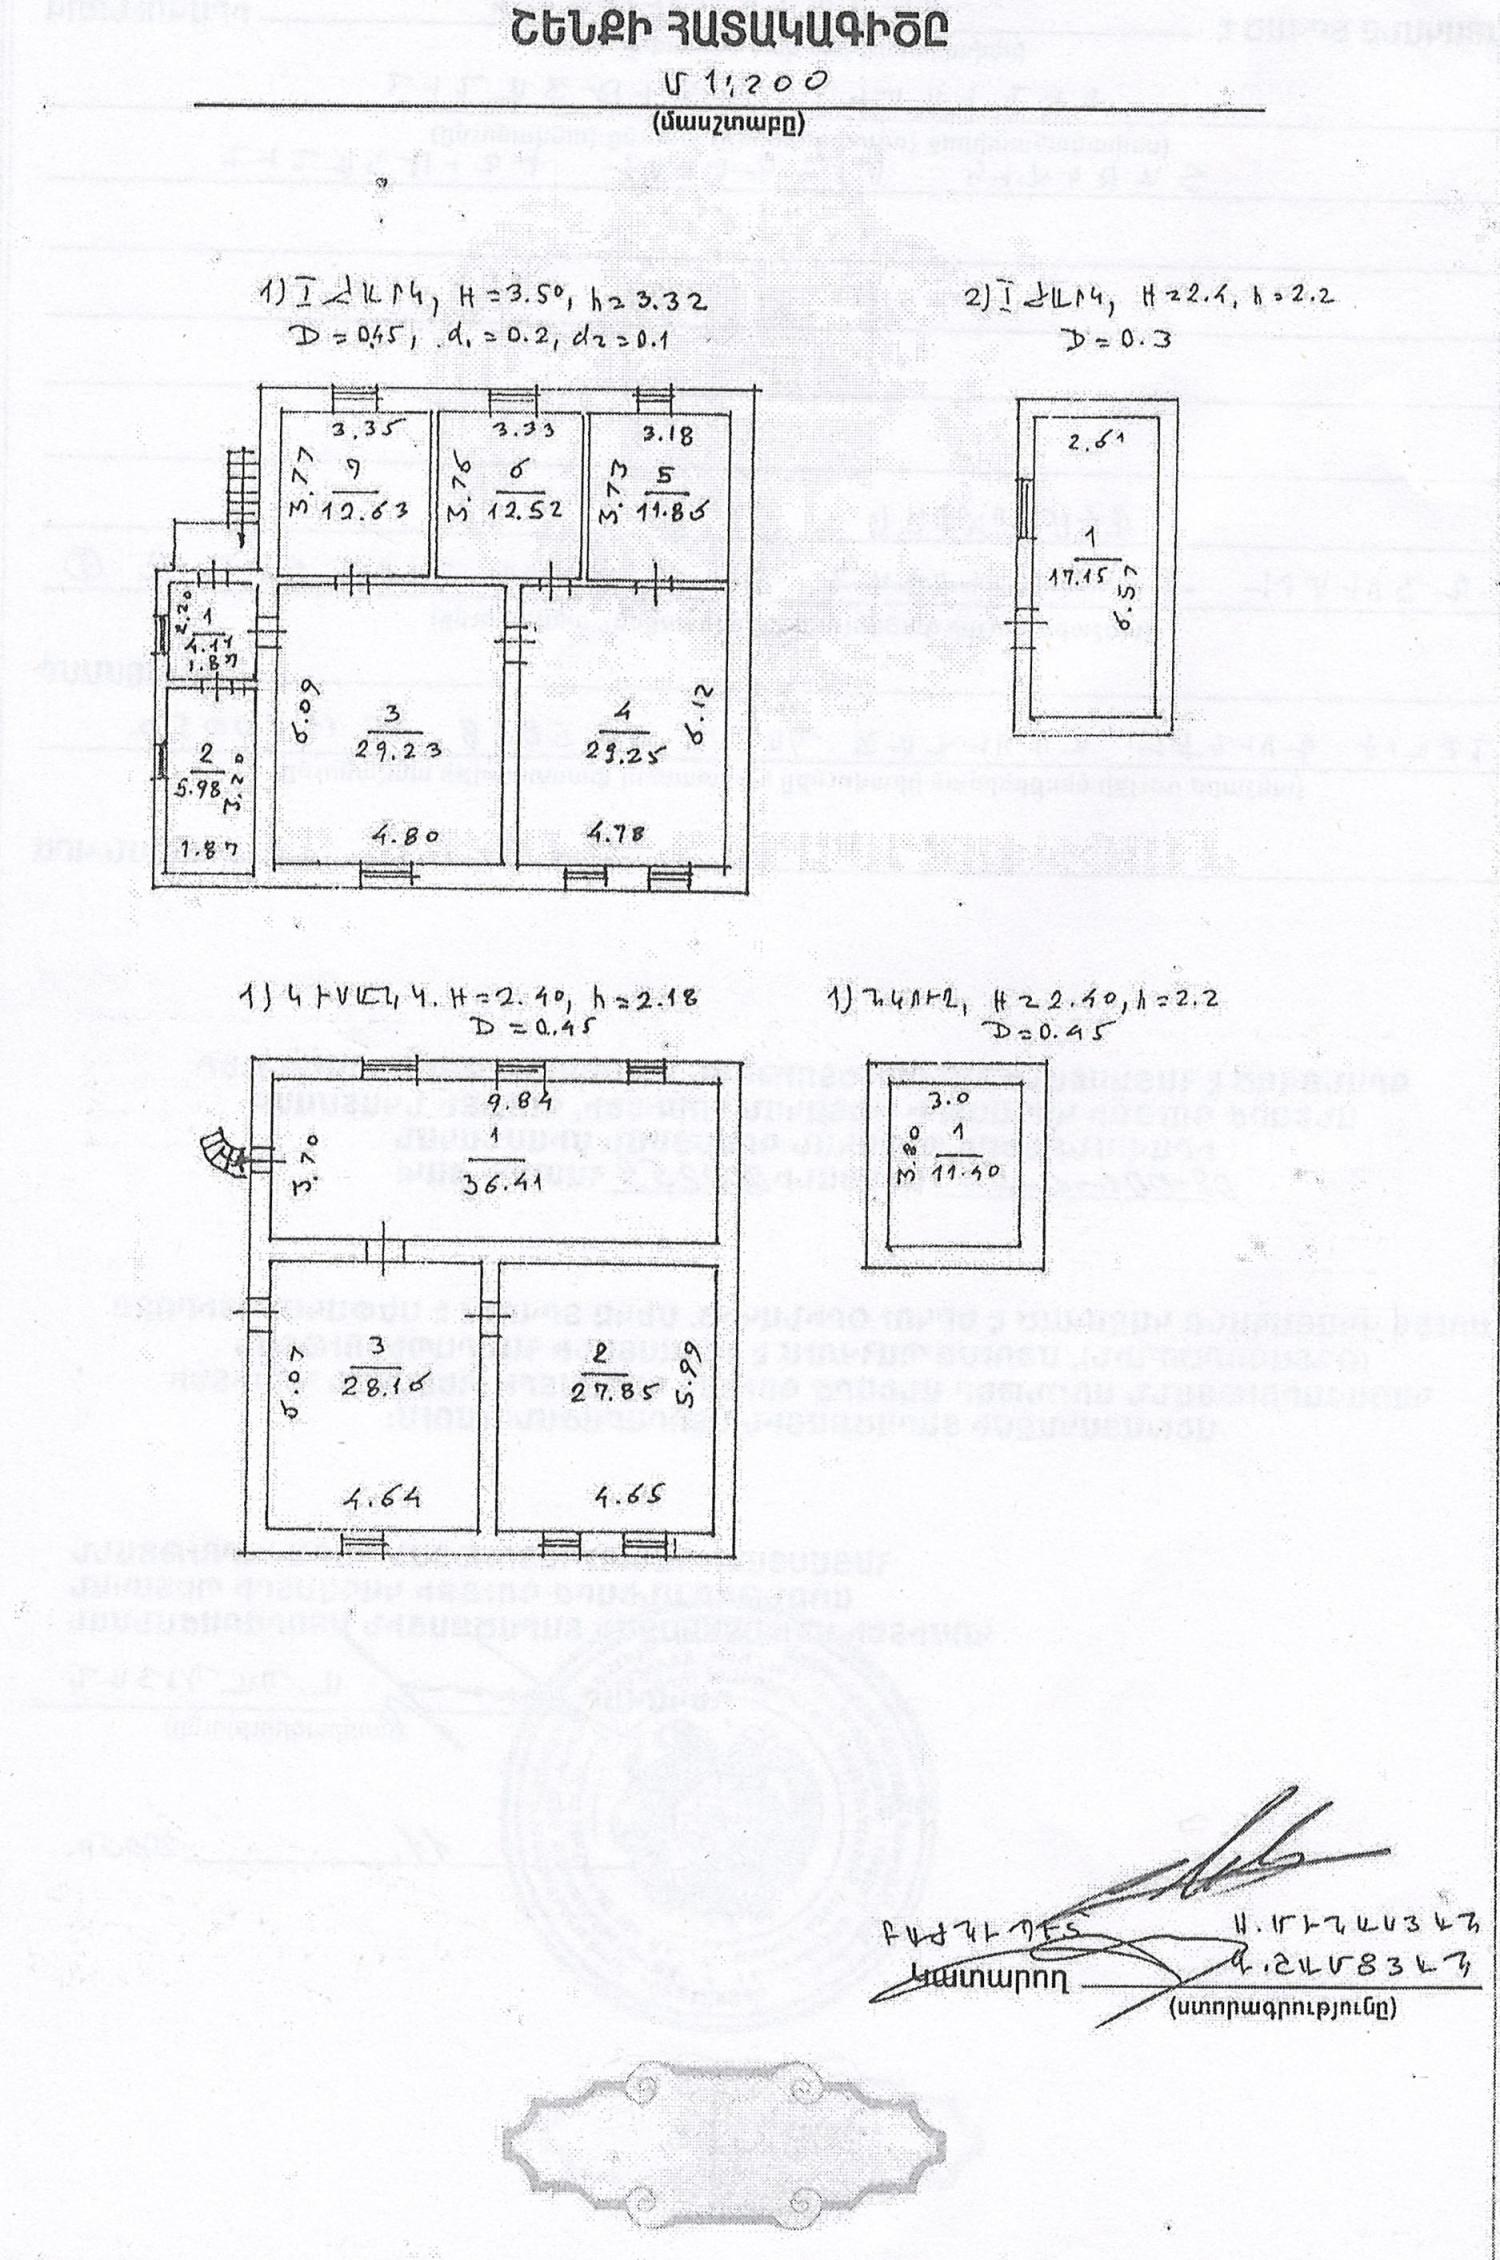 ՇԵՆՔԻ ՀԱՏԱԿԱԳԻԾԸ
Մ 1:200
(մասշտաբը)
1) I ՀԱՐԿ, H=3.50, h=3.32
D=0.45, d₁=0.2, d₂=0.1
2) I ՀԱՐԿ, H=2.4, h=2.2
D=0.3
3.35
3.77
7
12.63
3.33
3.76
6
12.52
3.18
3.73
5
11.86
2.61
1
17.15
6.57
2.20
1
4.11
1.87
2
5.98
3.20
1.87
6.09
3
29.23
4.80
4
29.25
6.12
4.78
1) ԿԻՍԱՆԿ. H=2.40, h=2.18
D=0.45
1) ՆԿՈՒՂ, H=2.40, h=2.2
D=0.45
9.84
3.70
1
36.41
3.0
3.80
1
11.40
6.07
3
28.16
4.64
2
27.85
5.99
4.65
ԲԱԺՆԻ ՊԵՏ
Ա. ՄԻՆԱՍՅԱՆ
Կատարող
(ստորագրությունը)